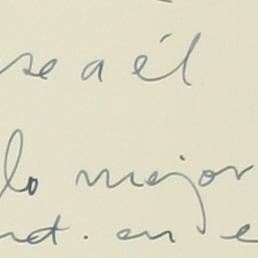 se a él
lo mejor
en e